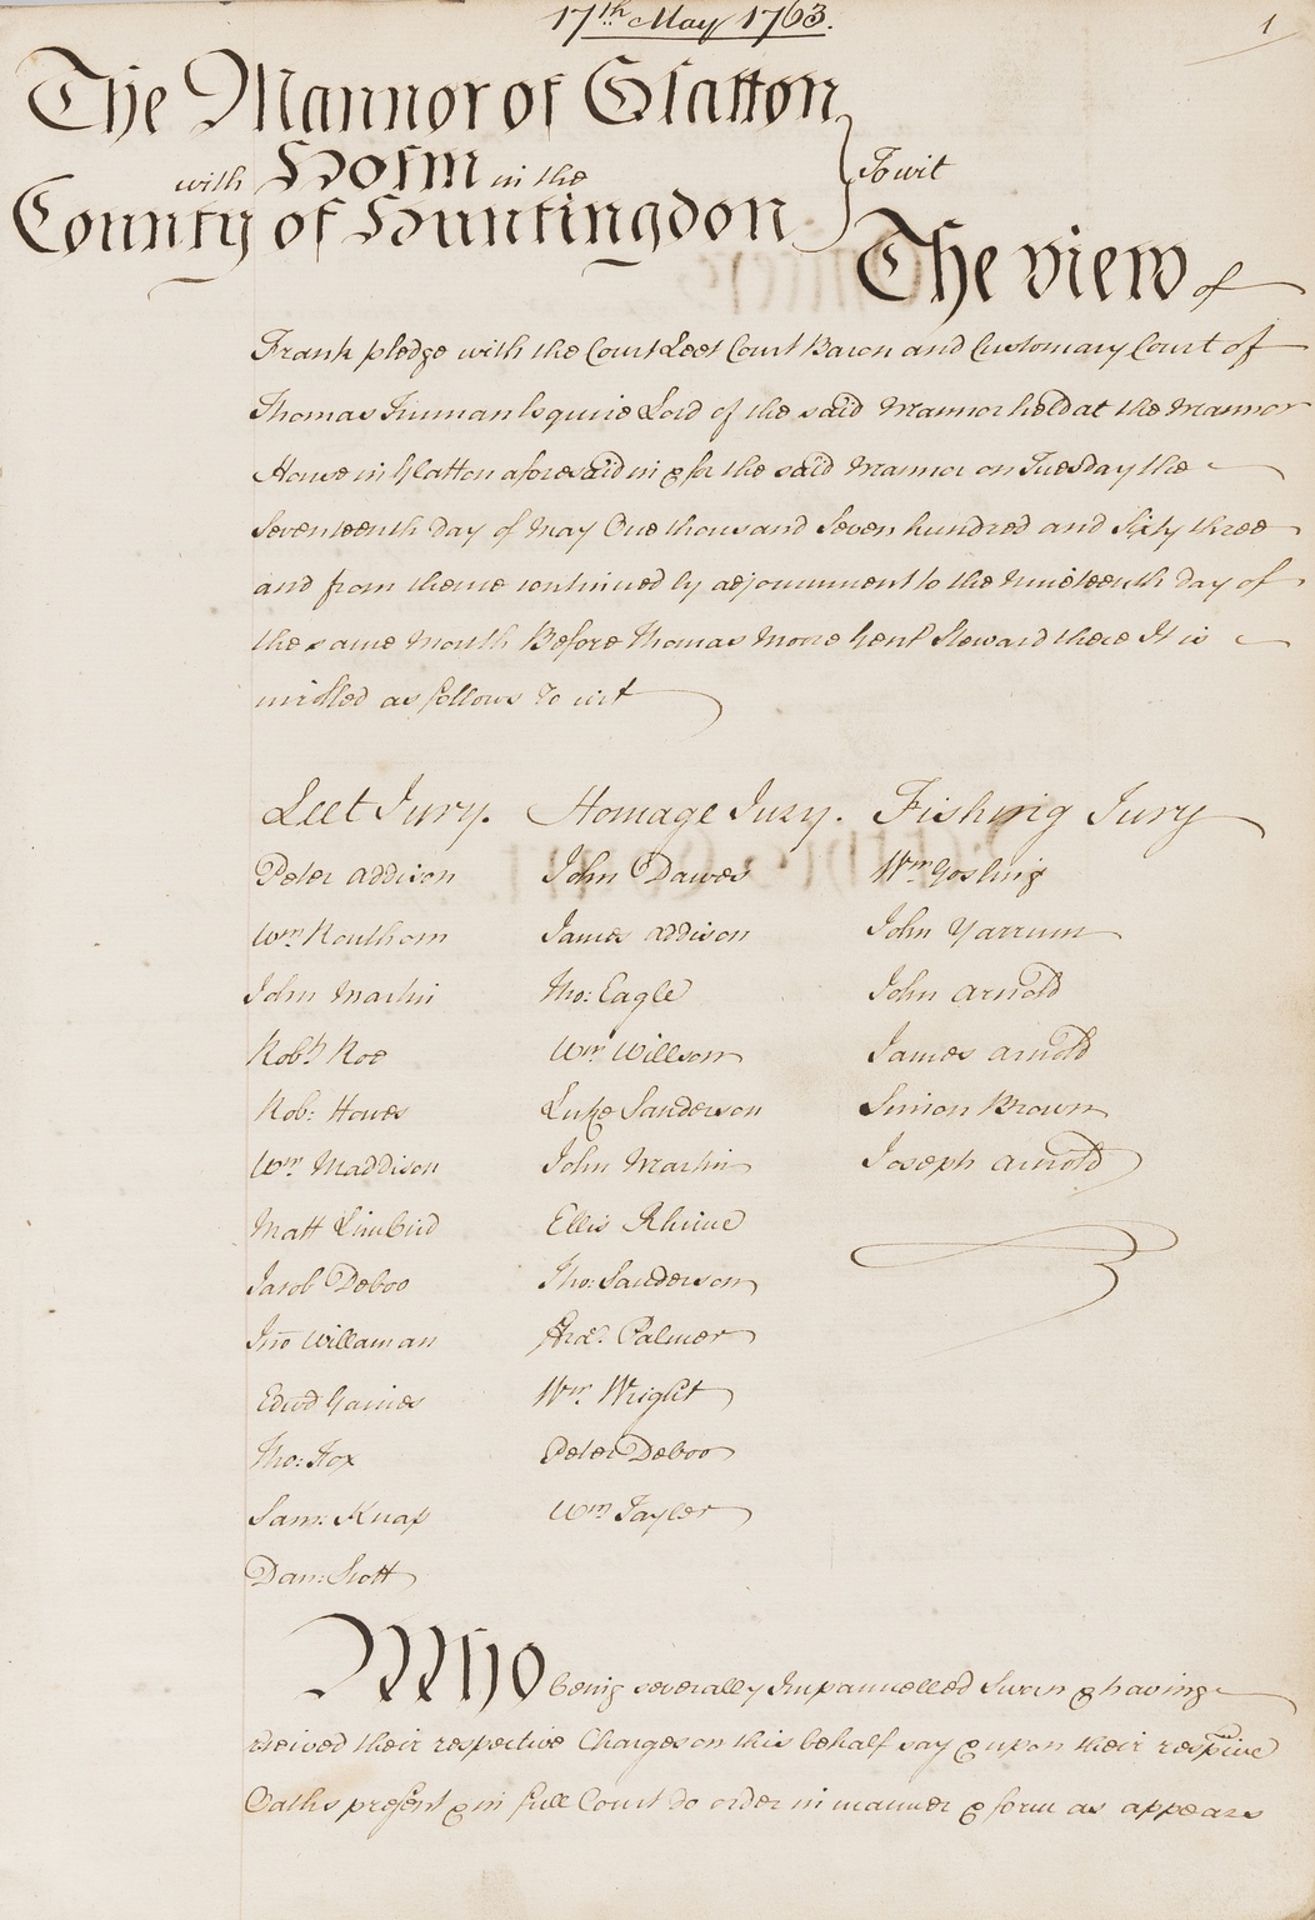 17th May 1763.
1
The Mannor of Glatton
with Holm in the
County of Huntingdon
To wit
The view of
Frank pledge with the Court Leet Court Baron and Customary Court of
Thomas Truman Esquire Lord of the said Mannor held at the Mannor
House in Glatton aforesaid in & for the said Mannor on Tuesday the
Seventeenth day of May One thousand Seven hundred and Sixty three
and from thence continued by adjournment to the Nineteenth day of
the same Month Before Thomas Moore Gent Steward there It is
inrolled as follows To wit
Leet Jury. Homage Jury. Fishing Jury
Peter Addison John Dawes Wm Gosling
Wm Routhorn James Addison John Yarrum
John Martin Tho: Eagle John Arnold
Robt Roe Wm Willson James Arnold
Rob: Howes Luke Sanderson Simon Brown
Wm Maddison John Martin Joseph Arnold
Matt Limbird Ellis Rhime
Jacob Deboo Tho: Sanderson
Jno Willaman Palmer
Edwd Gaines Wm Wright
Tho: Fox Peter Deboo
Sam: Knap Wm Tayler
Dan: Scott
Who being severally Impannelled Sworn & having
received their respective Charges on this behalf say & upon their respive
Oaths present & in full Court do order in manner & form as appears